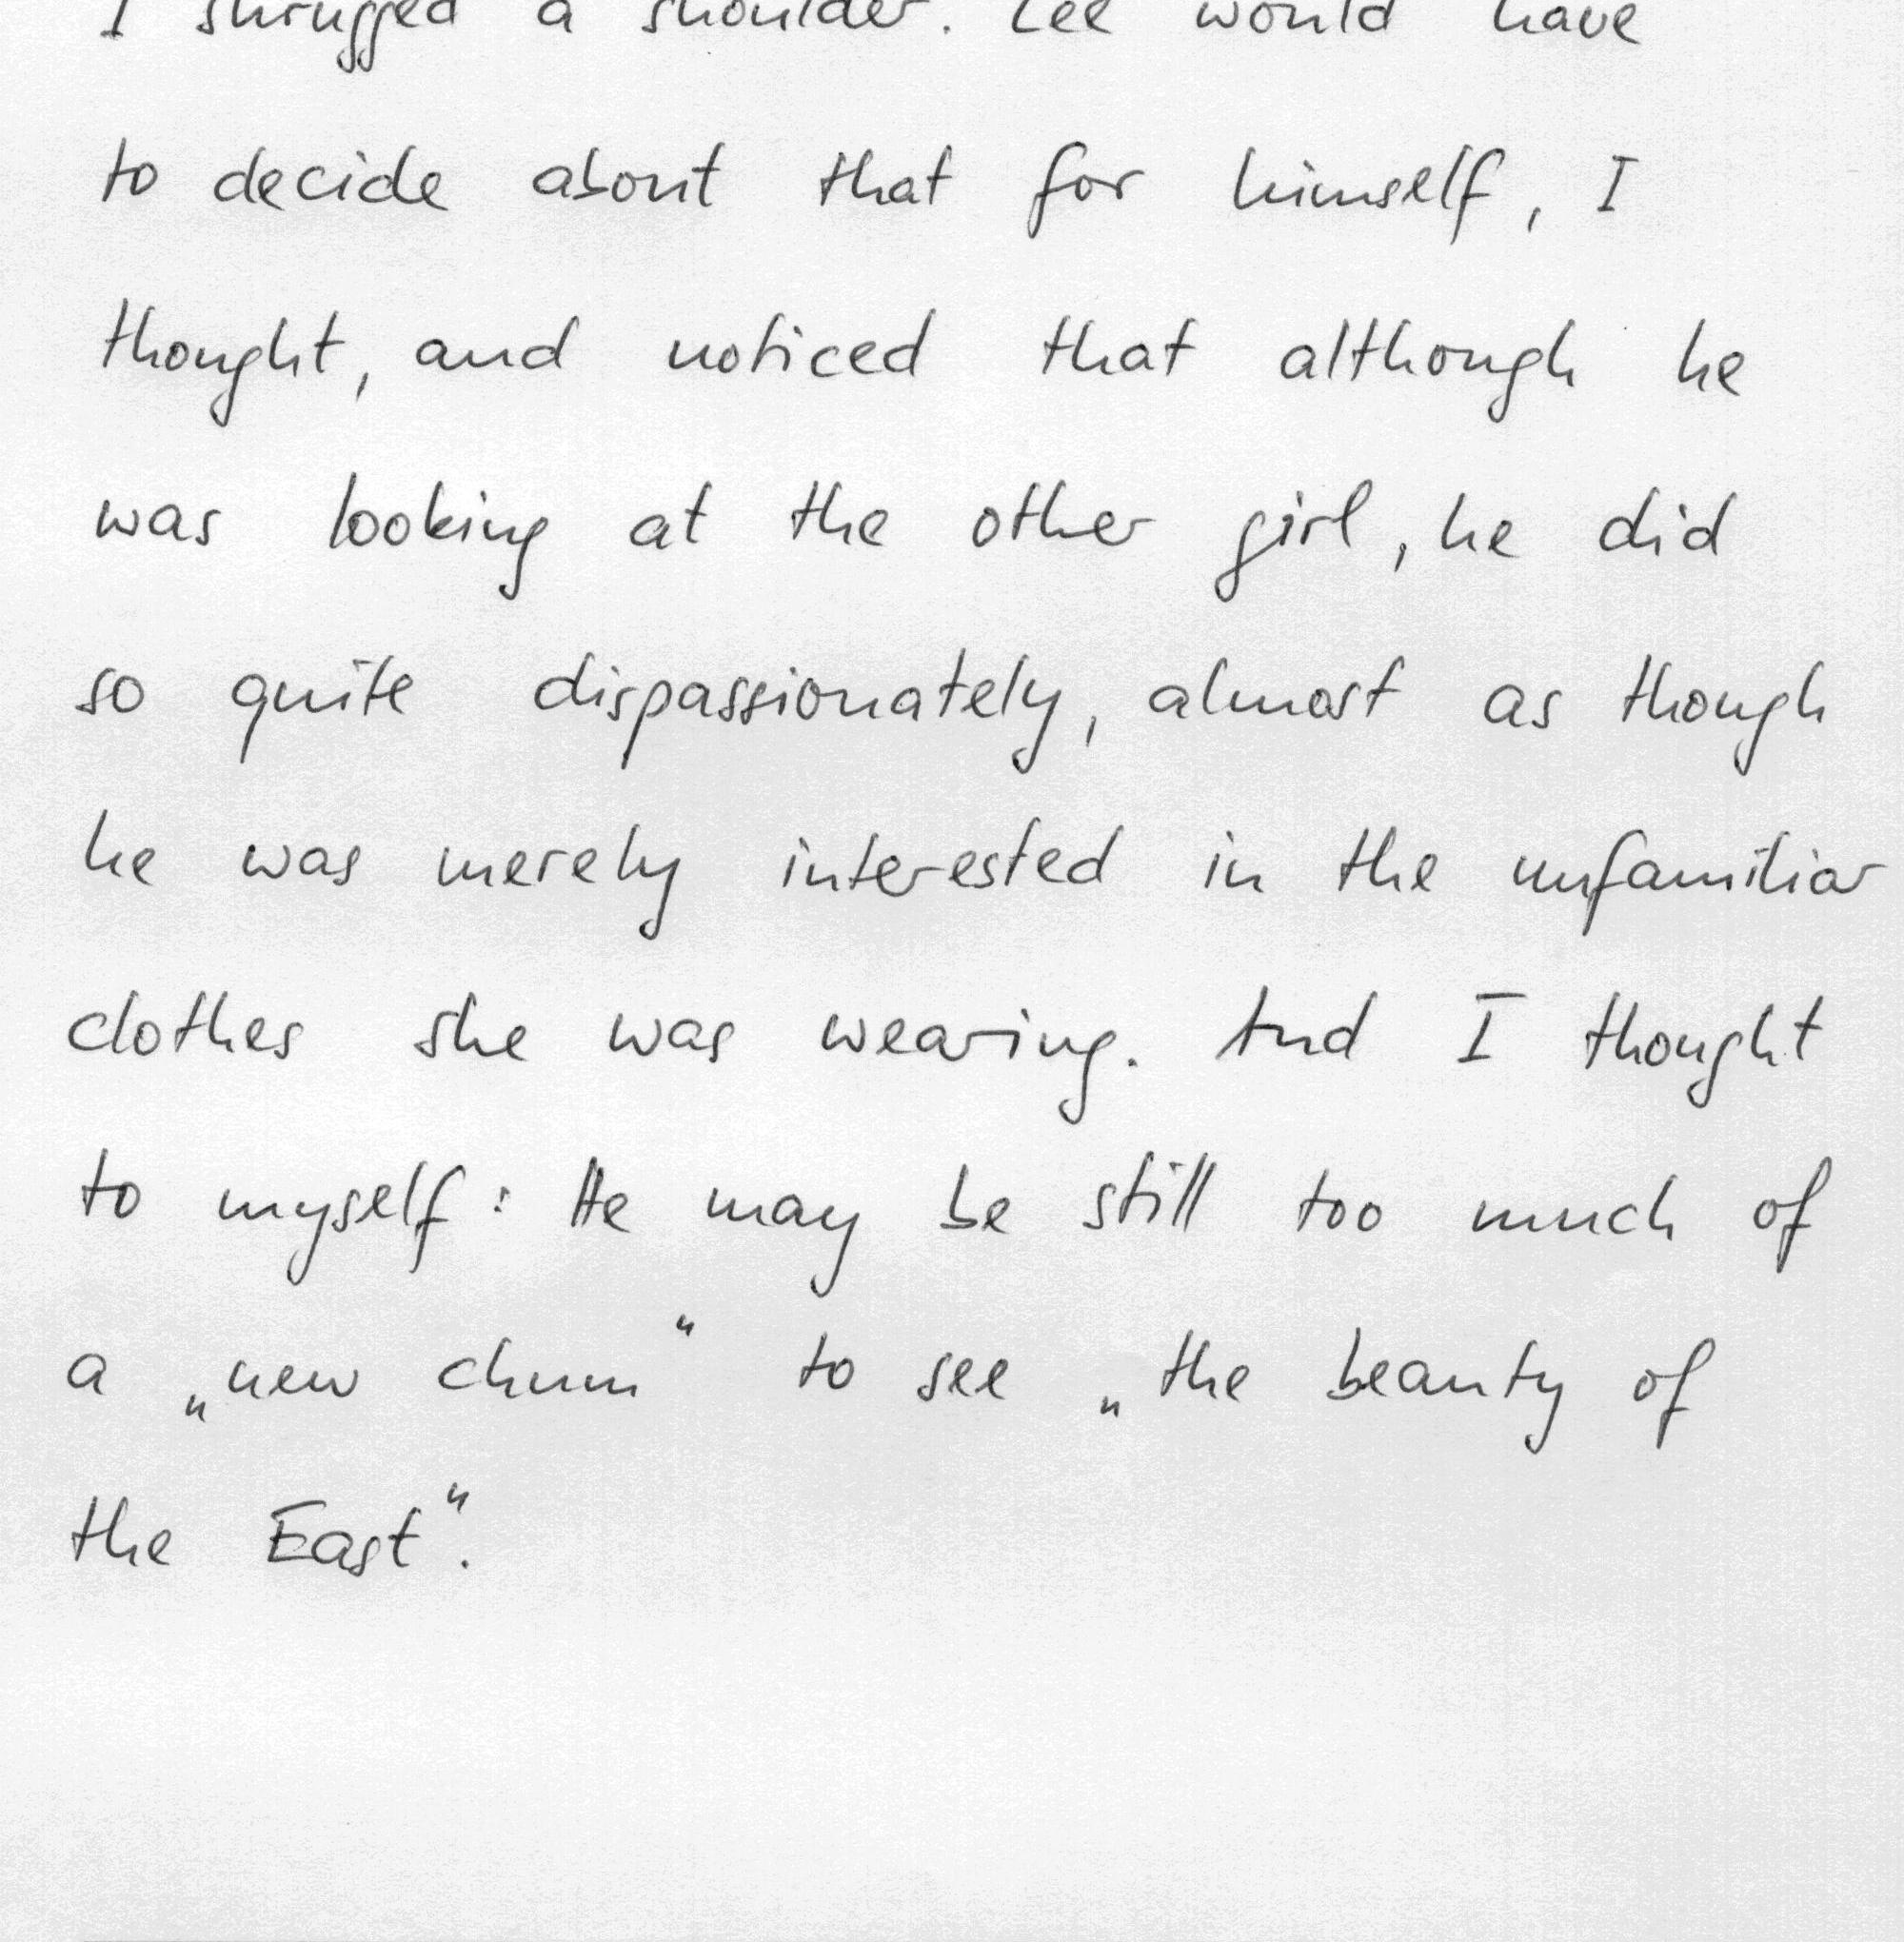 I shrugged a shoulder. Lee would have
to decide about that for himself, I
thought, and noticed that although he
was looking at the other girl, he did
so quite dispassionately, almost as though
he was merely interested in the unfamiliar
clothes she was wearing. And I thought
to myself: He may be still too much of
a „new chum" to see „the beauty of
the East".